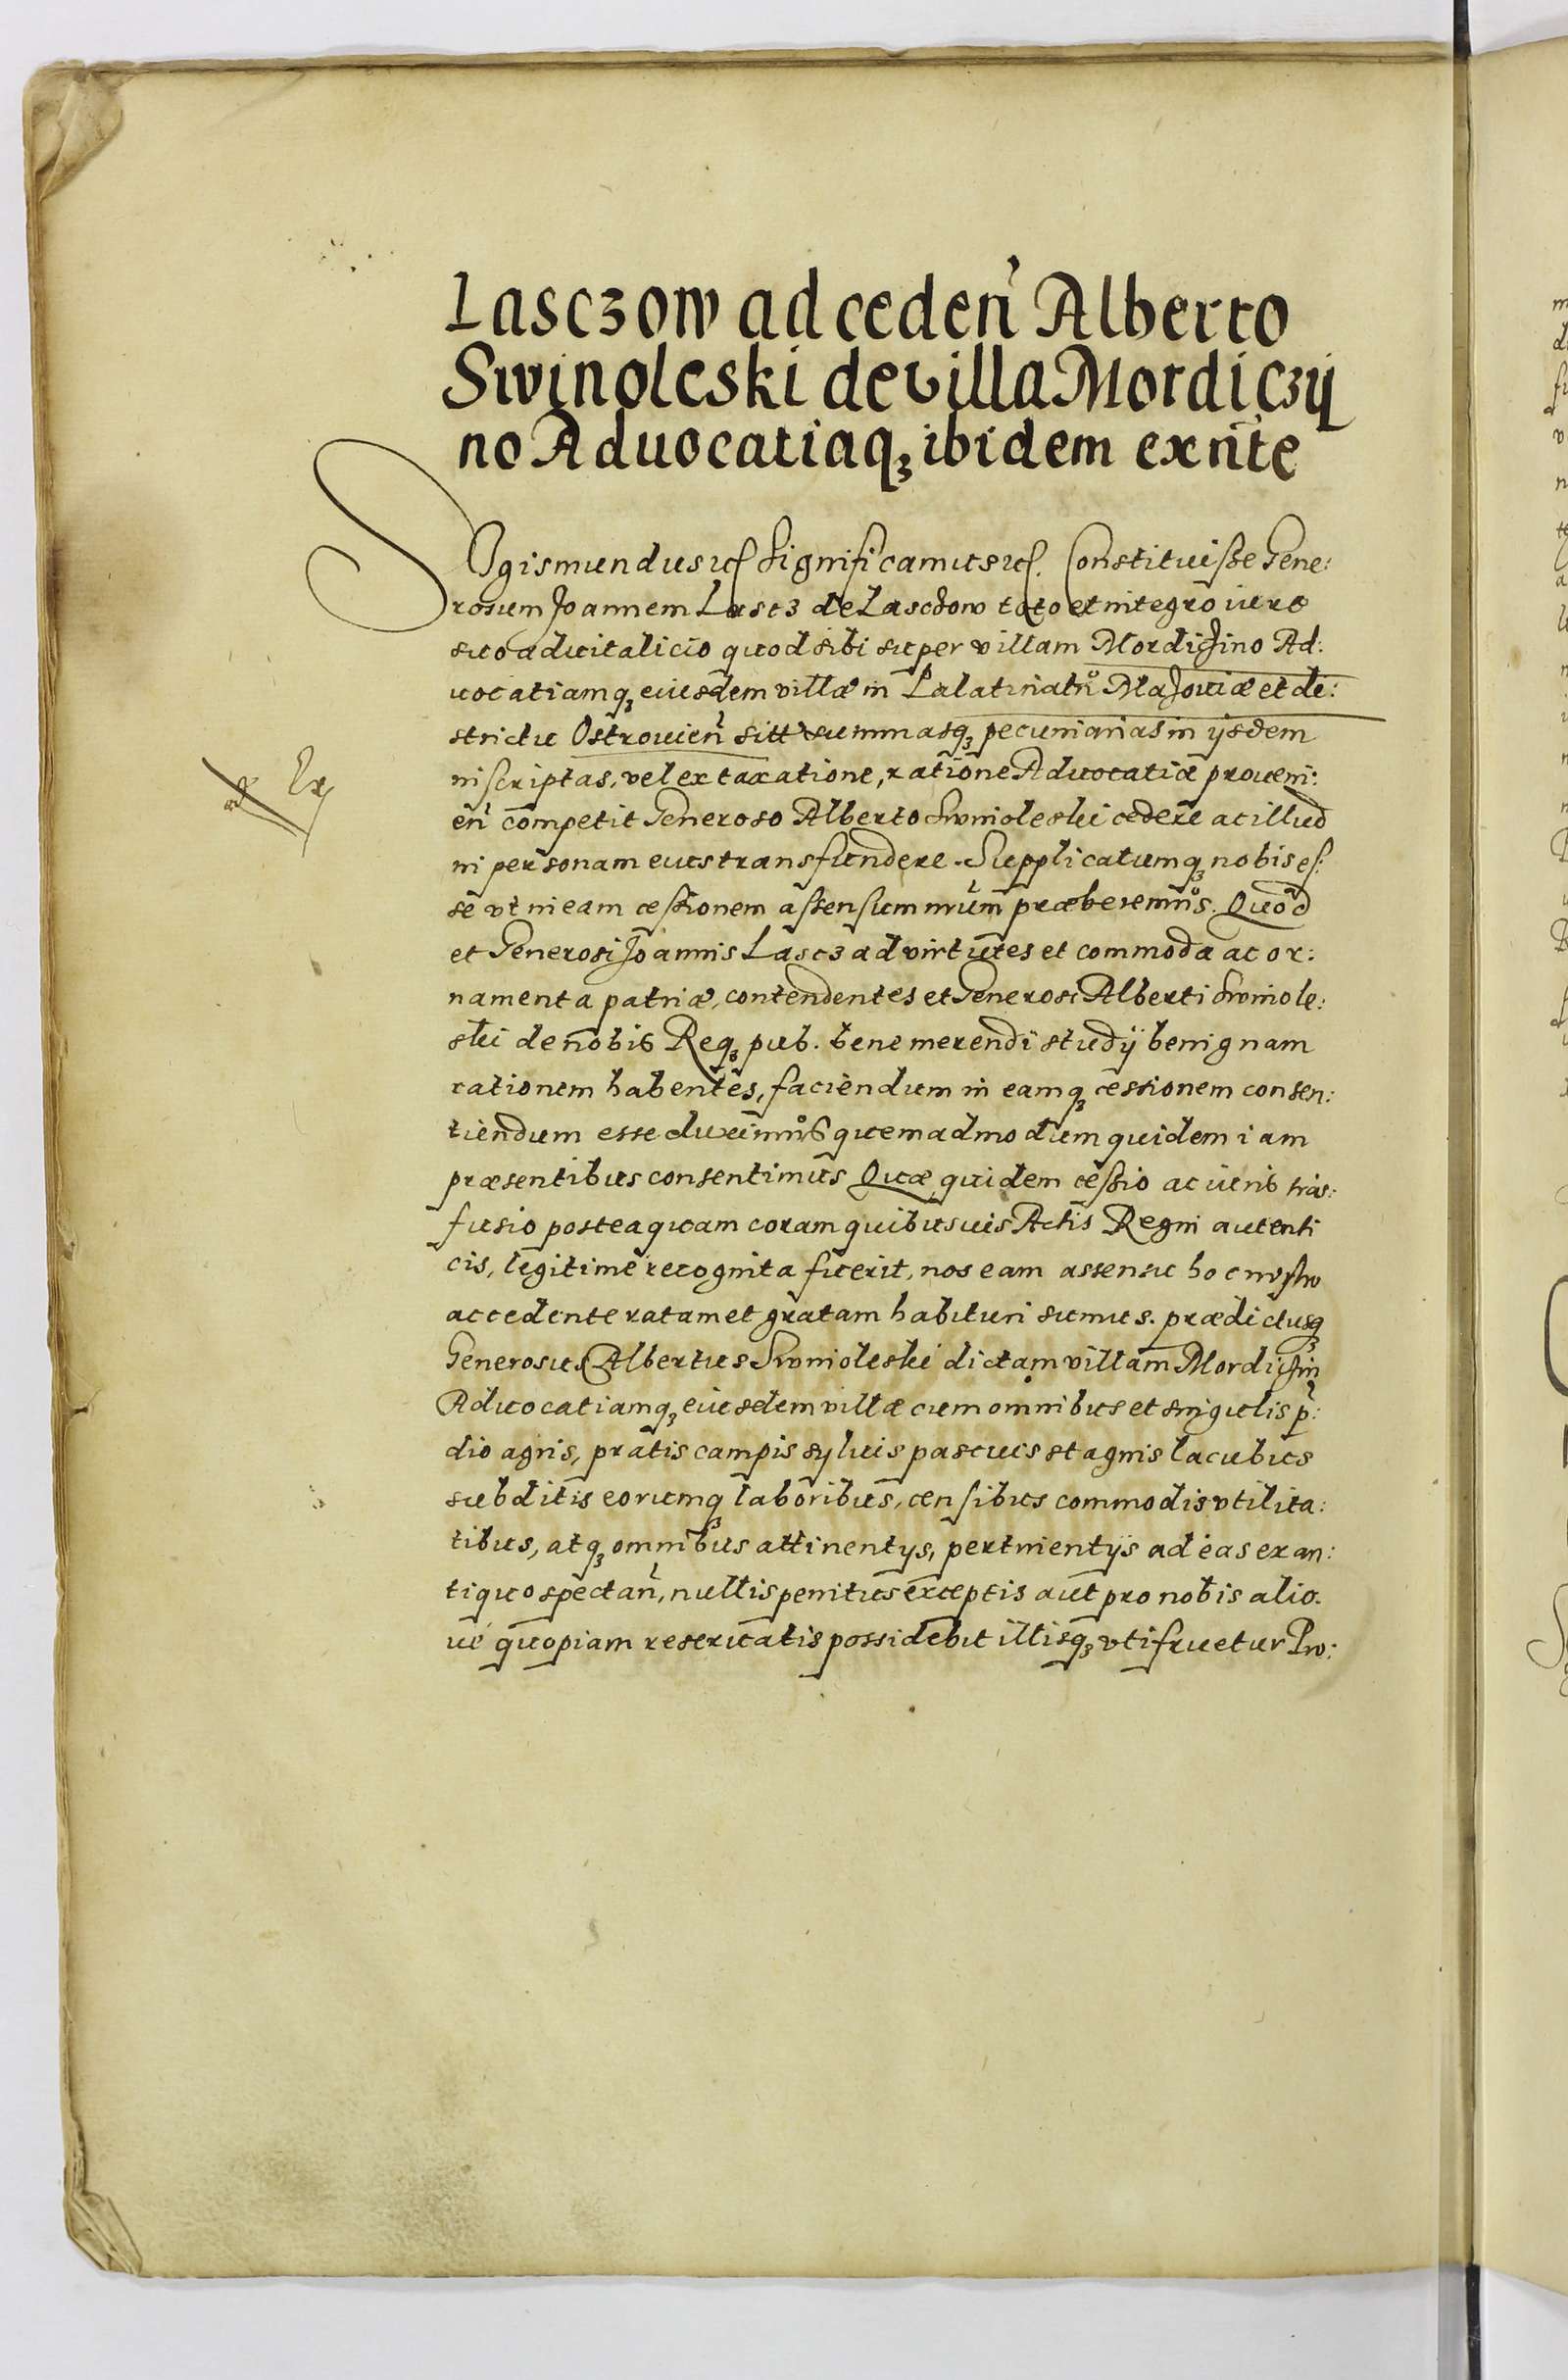 Lasczow ad ceden̄ Alberto
Swinoleski de villa Mordiczij
no Aduocatiaq₃ ibidem exn̄te
SIgismundus etc Significamus etc. Constituisse Gene:
rosum Joannem Lascz de Lasczow toto et integro iure
suo aduitalicio quod sibi super villam Mordiczino Ad:
uocatiamq₃ eiusdem villæ in Palatinatu Mazouiæ et di:
strictu Ostrouien̄ sitt summasq₃ pecuniarias in ijsdem
inscriptas, vel ex taxatione, ratione Aduocatiæ proueni:
en̄ competit Generoso Alberto Swinoleski cedere ac illud
in personam eius transfundere. Supplicatumq₃ nobis es:
se vt in eam cessionem assensum nrūm præberemus. Quod
et Generosi Joannis Lascz ad virtutes et commoda ac or:
namenta patriæ, contendentes et Generosi Alberti Swinole:
ski de nobis Req₃ pub. bene merendi studij benignam
rationem habentes, faciendum in eamq₃ cessionem consen:
tiendum esse duximus quemadmodum quidem iam
præsentibus consentimus Quæ quidem cessio ac iuris trās:
fusio posteaquam coram quibusuis Actis Regni autenti
cis, legitime recognita fuerit, nos eam assensu hoc nostro
accedente ratam et gratam habituri sumus. prædictusq₃
Generosus Albertus Swinoleski dictam villam Mordiczin
Aduocatiamq₃ eiusdem villæ cum omnibus et singulis p̄:
dio agris, pratis campis syluis pascuis stagnis lacubus
subditis eorumq₃ laboribus, censibus commodis vtilita:
tibus, atq₃ omnibus attinentys, pertinentijs ad eas ex an:
tiquo spectan̄, nullis penitus exceptis aut pro nobis alio
ue quopiam reseruatis possidebit illisq₃ vtifruetur Pro:
Ex